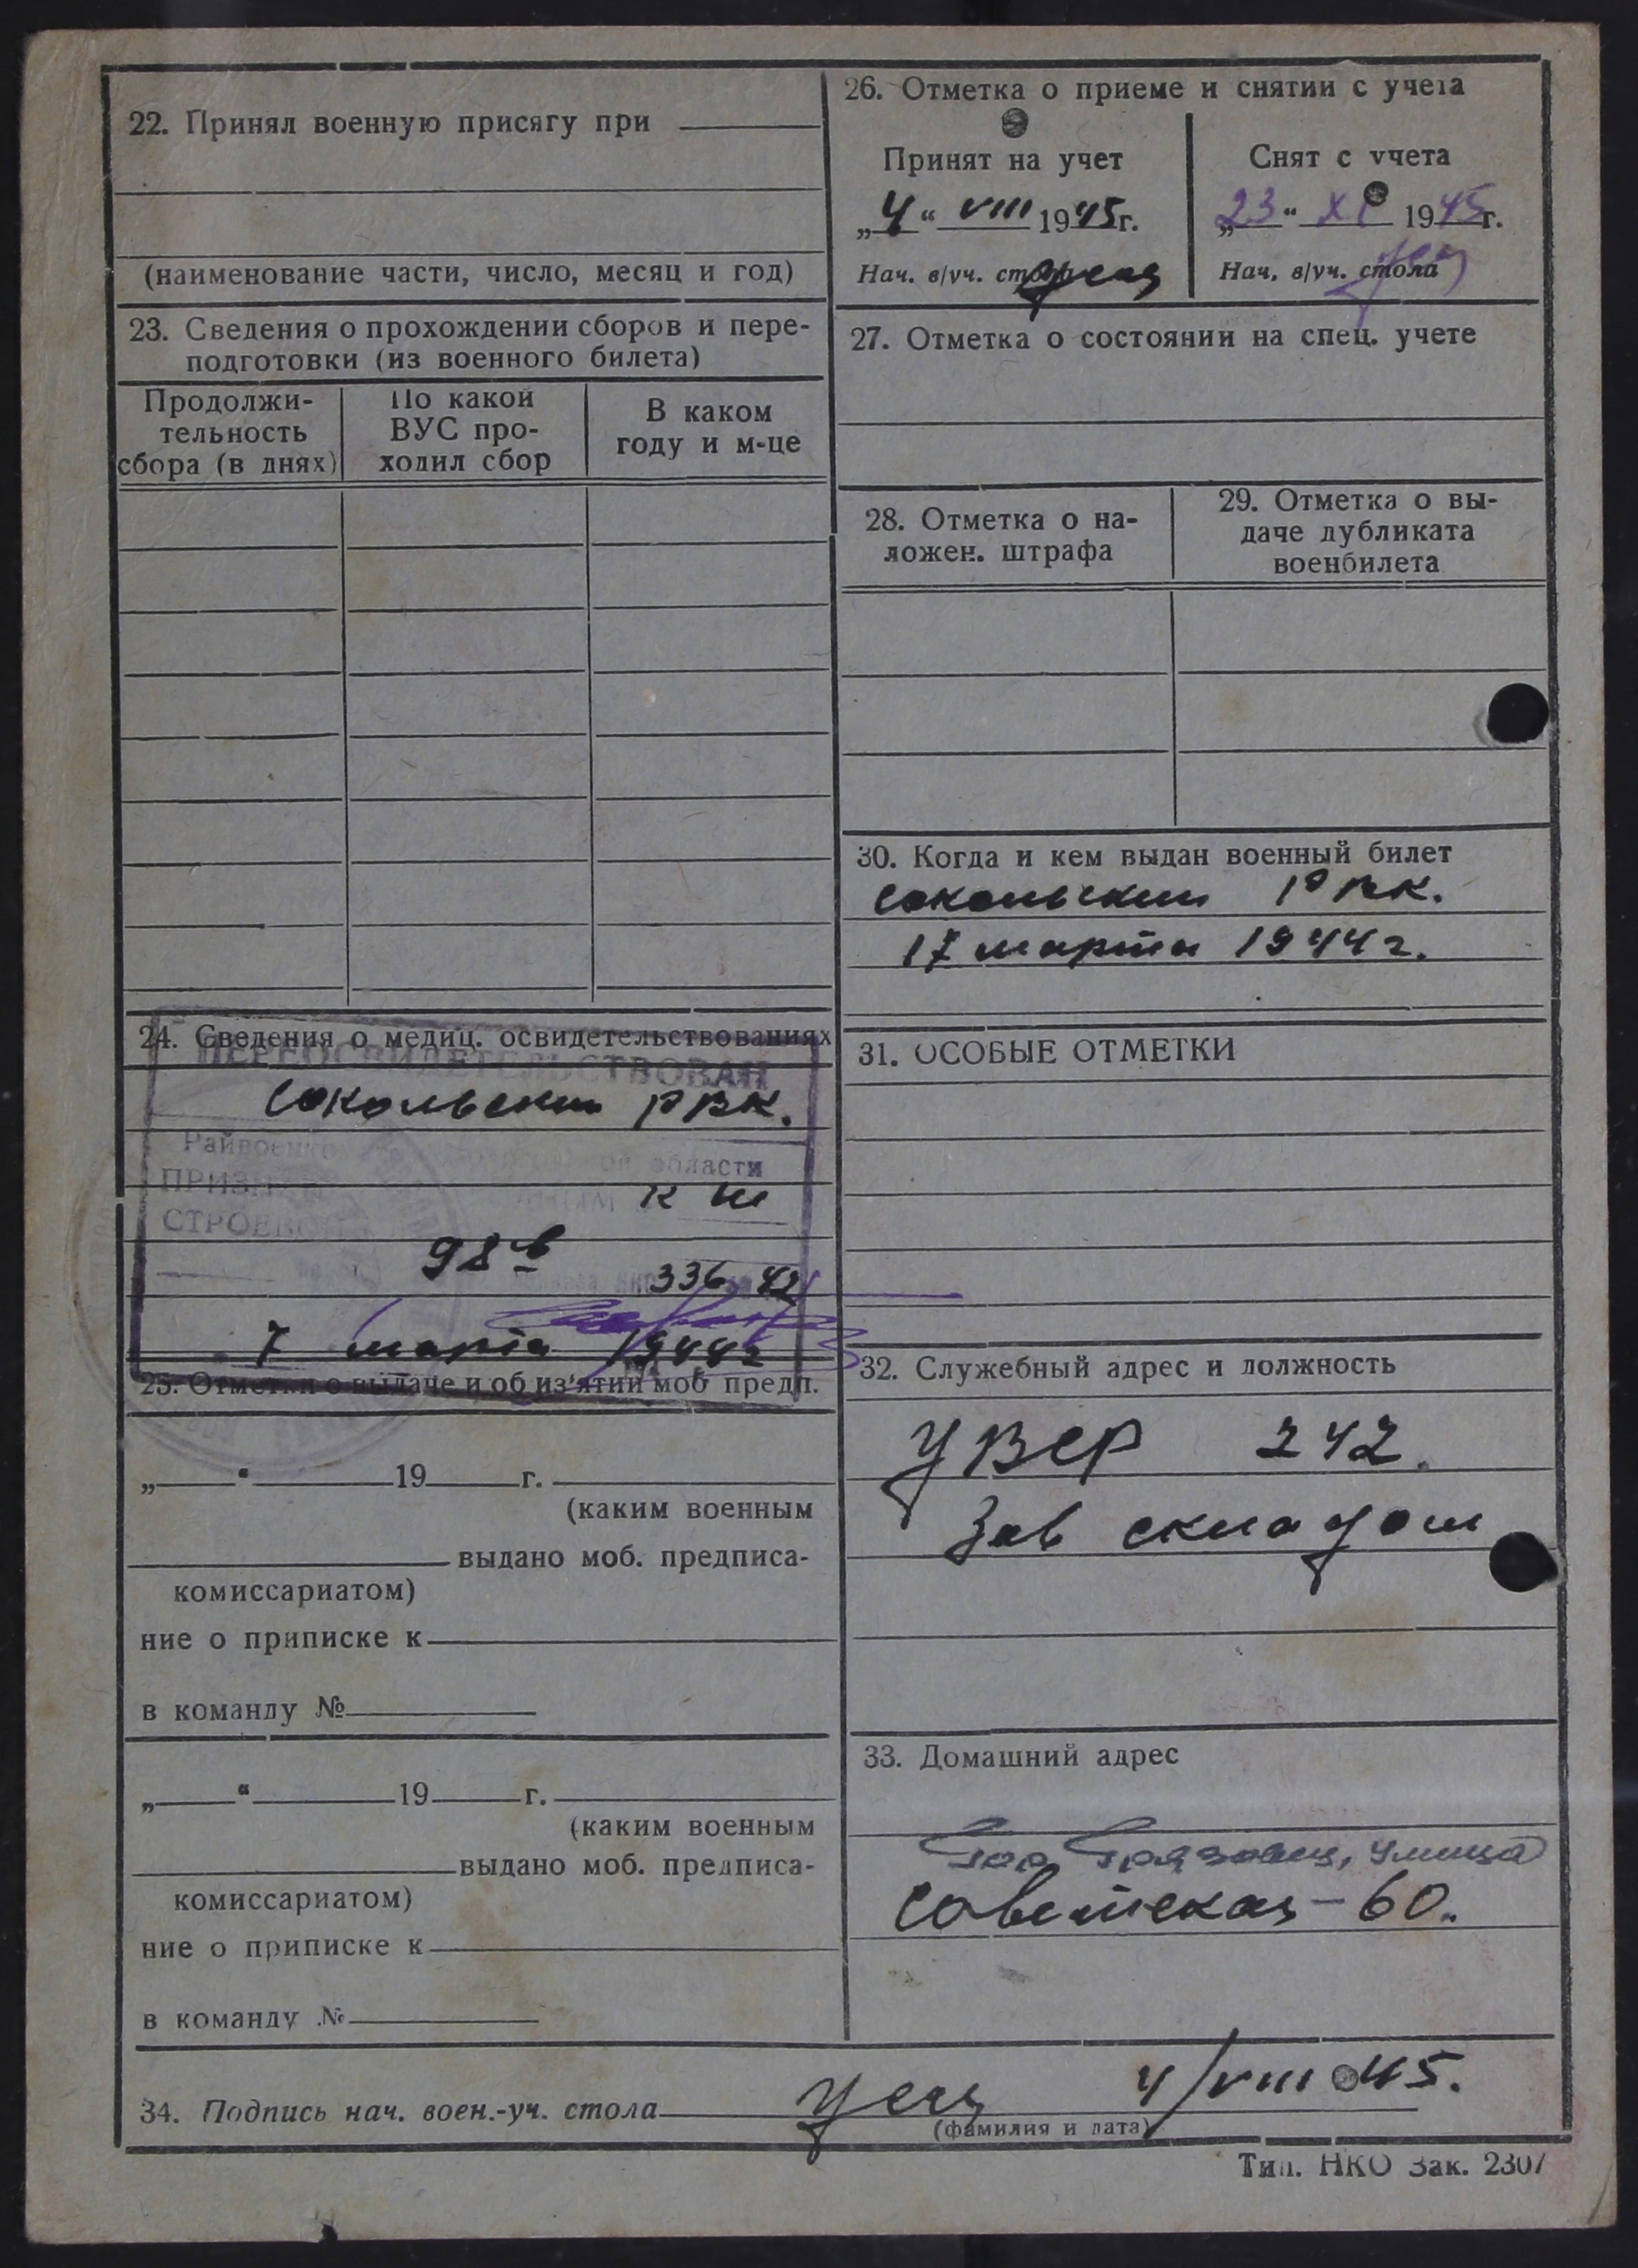 22. Принял военную присягу при
(наименование части, число, месяц и год)
23. Сведения о прохождении сборов и пере-
подготовки (из военного билета)
Продолжи-
тельность
сбора (в днях)
По какой
ВУС про-
ходил сбор
В каком
году и м-це
24. Сведения о медиц. освидетельствованиях
ПЕРЕОСВИДЕТЕЛЬСТВОВАН
Сокольским РВК.
области
СТРОЕВОЙ
к
98 в
336 42
7 марта 1944г
25. Отметки о выдаче и об из'ятии моб предп.
„ “ 19 г.
(каким военным
выдано моб. предписа-
комиссариатом)
ние о приписке к
в команду №
„ “ 19 г.
(каким военным
выдано моб. предписа-
комиссариатом)
ние о приписке к
в команду №
26. Отметка о приеме и снятии с учета
Принят на учет
„4“ VIII 1945г.
Нач. в/уч. стола
Снят с учета
„23“ XI 1945г.
Нач. в/уч. стола
27. Отметка о состоянии на спец. учете
28. Отметка о на-
ложен. штрафа
29. Отметка о вы-
даче дубликата
военбилета
30. Когда и кем выдан военный билет
Сокольским РВК.
17 марта 1944г.
31. ОСОБЫЕ ОТМЕТКИ
32. Служебный адрес и должность
УВСР 242.
Зав складом
33. Домашний адрес
Гор Грязовец, улица
Советская – 60.
34. Подпись нач. воен.-уч. стола 4/VIII 45.
(фамилия и дата)
Тип. НКО Зак. 2307